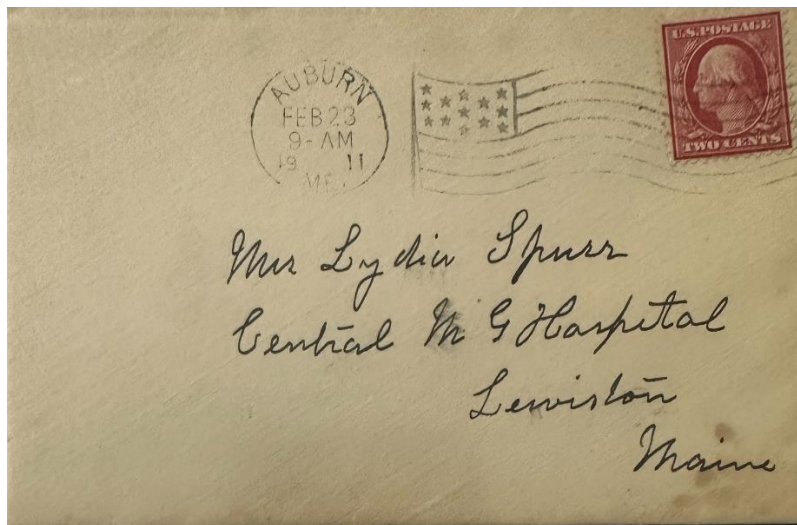 AUBURN
FEB 23
9-AM
19 11
ME.
U.S. POSTAGE
TWO CENTS
Mrs Lydia Spurr
Central M G Hospital
Lewiston
Maine